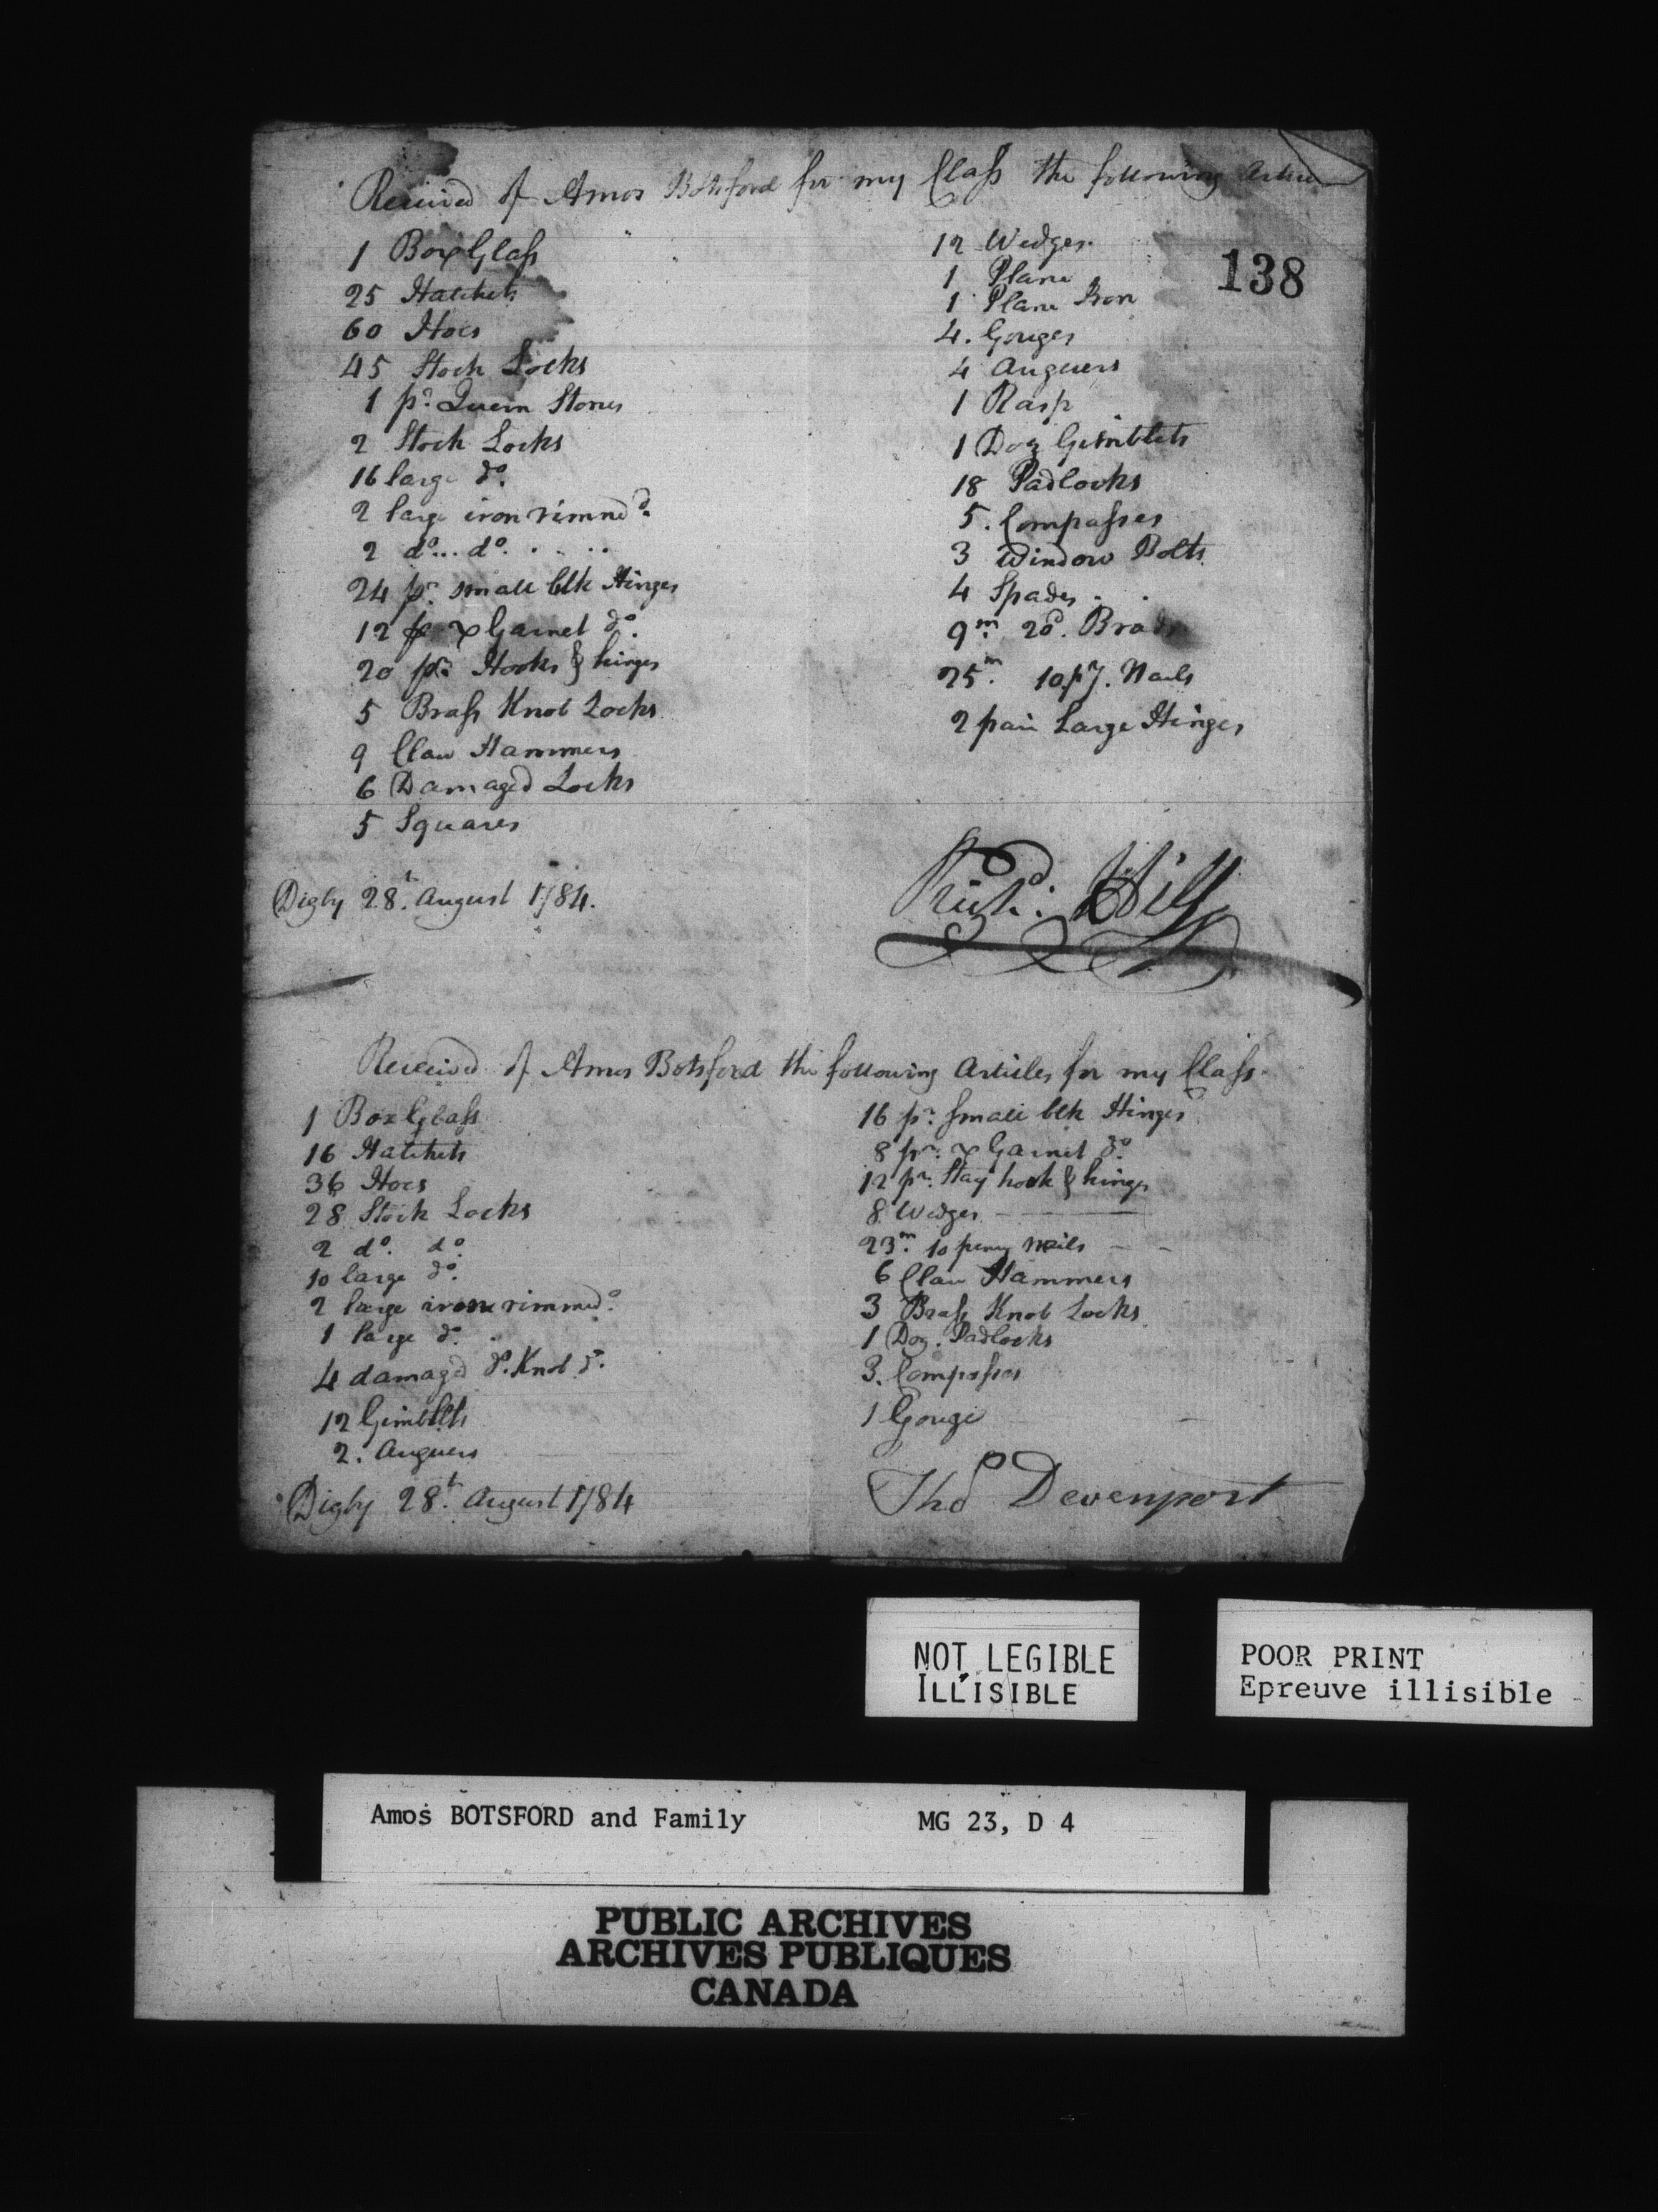 Received of Amos Botsford for my Class the following
1 Box Glass
25 Hatchets
60 Hoes
45 Stock Locks
1 pr. Quern Stones
2 Stock Locks
16 large do.
2 large iron rimmed do.
2 do... do. . . . .
24 pr. small blk Hinges
12 pr Garnet do.
20 pr. Hooks & hinges
5 Brass Knob Locks
9 Claw Hammers
6 Damaged Locks
5 Squares
12 Wedges.
138
1 Plane
1 Plane Iron
4. Gouges
4 Auguers
1 Rasp
1 Doz Gimblets
18 Padlocks
5. Compasses
3 Window Bolts.
4 Spades . .
9m. 20d. Brads
25m. 10.py. Nails
2 pair Large Hinges
Digby 28t. August 1784.
Richd. Hill
Received of Amos Botsford the following Articles for my Class.
1 Box Glass
16 Hatchets
36 Hoes
28 Stock Locks
2 do. do.
10 large do.
2 large iron rimmed do.
1 large do.
4 damaged do. Knob do.
12 Gimblets
2. Auguers
16 pr. small blk Hinges
8 pr. Garnet do.
12 pr. Stay hook & hinges
8 Wedges
23m. 10 peny nails
6 Claw Hammers
3 Brass Knob Locks
1 Doz. Padlocks
3. Compasses
1 Gouge
Digby 28t. August 1784
Thos Devenport
NOT LEGIBLE
ILLISIBLE
POOR PRINT
Epreuve illisible
Amos BOTSFORD and Family MG 23, D 4
PUBLIC ARCHIVES
ARCHIVES PUBLIQUES
CANADA